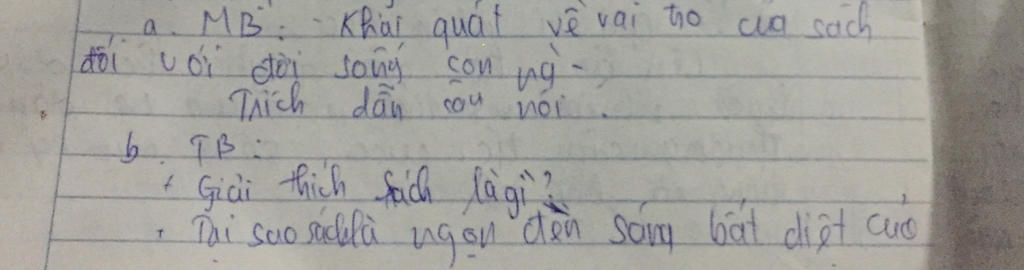 a. MB: - Khái quát về vai trò của sách
đối với đời sống con ng -
Trích dẫn câu nói.
b. TB:
+ Giải thích sách là gì?
+ Tại sao sách là ngọn đèn sáng bất diệt của